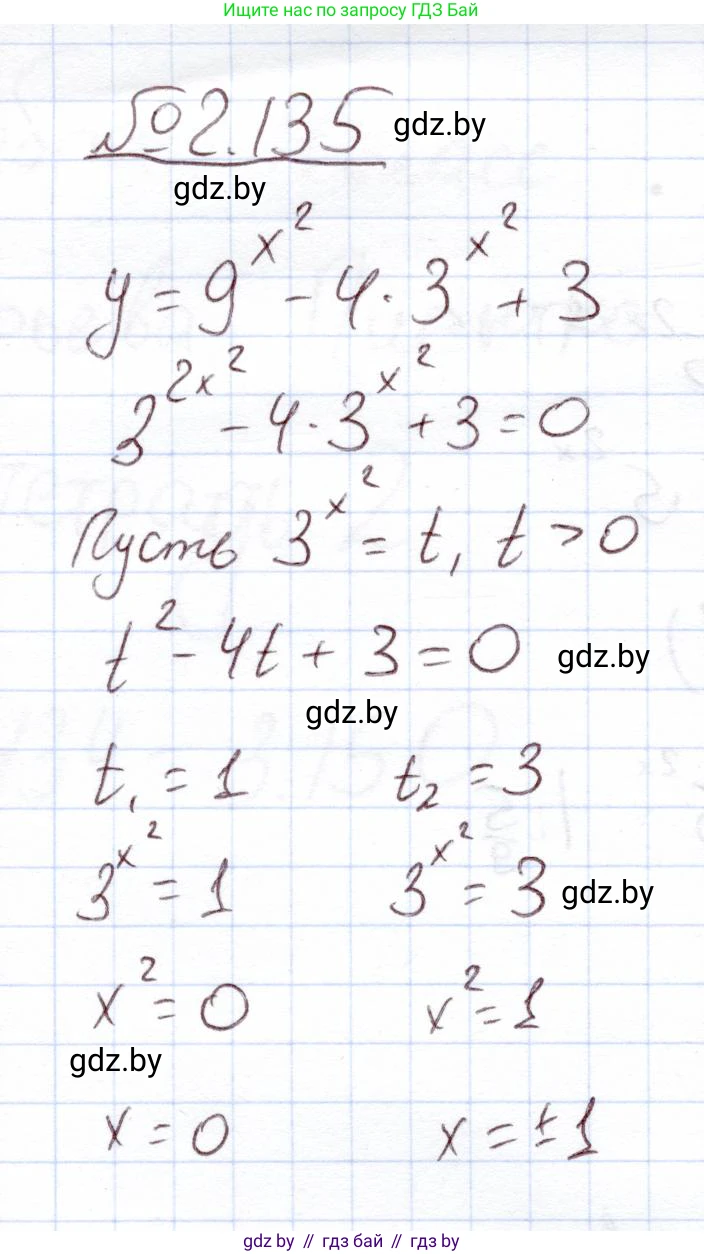 Ищите нас по запросу ГДЗ Бай
№2.135 gdz.by
gdz.by
y = 9^{x^2} - 4 · 3^{x^2} + 3
3^{2x^2} - 4 · 3^{x^2} + 3 = 0
Пусть 3^{x^2} = t, t > 0
t^2 - 4t + 3 = 0 gdz.by
gdz.by
t_1 = 1 t_2 = 3
3^{x^2} = 1 3^{x^2} = 3 gdz.by
x^2 = 0 x^2 = 1
gdz.by
x = 0 x = ±1
gdz.by // гдз бай // гдз by